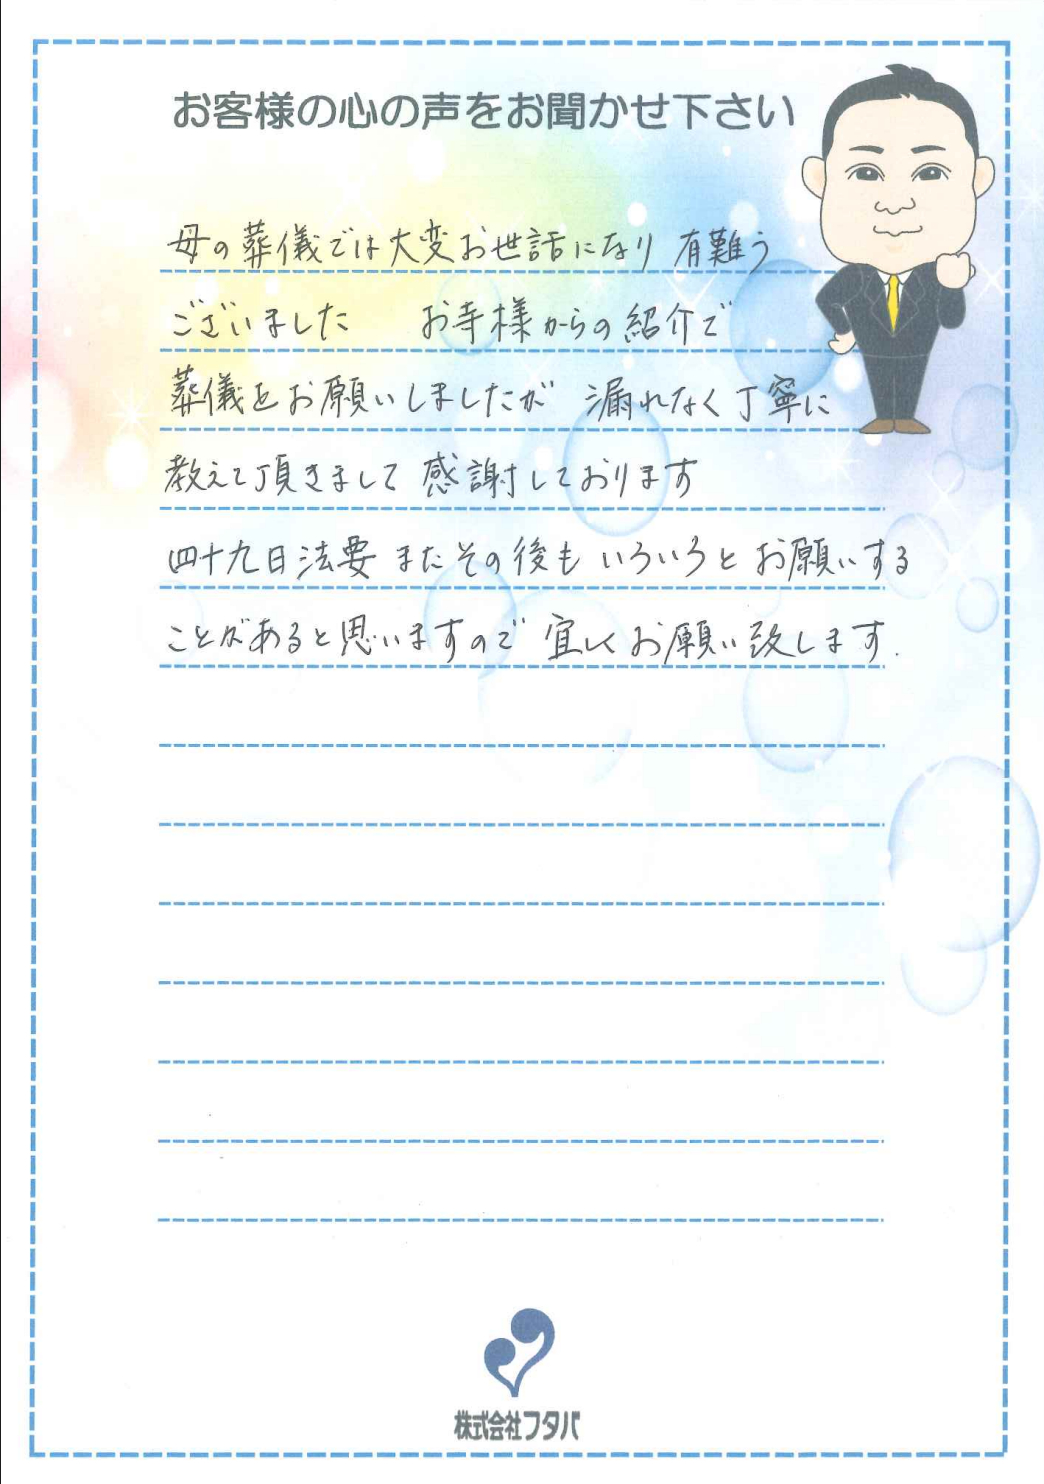 お客様の心の声をお聞かせ下さい
母の葬儀では大変お世話になり 有難う
ございました　お寺様からの紹介で
葬儀をお願いしましたが 漏れなく丁寧に
教えて頂きまして 感謝しております
四十九日法要 またその後も いろいろと お願いする
ことがあると思いますので 宜しくお願い致します.
株式会社フタバ